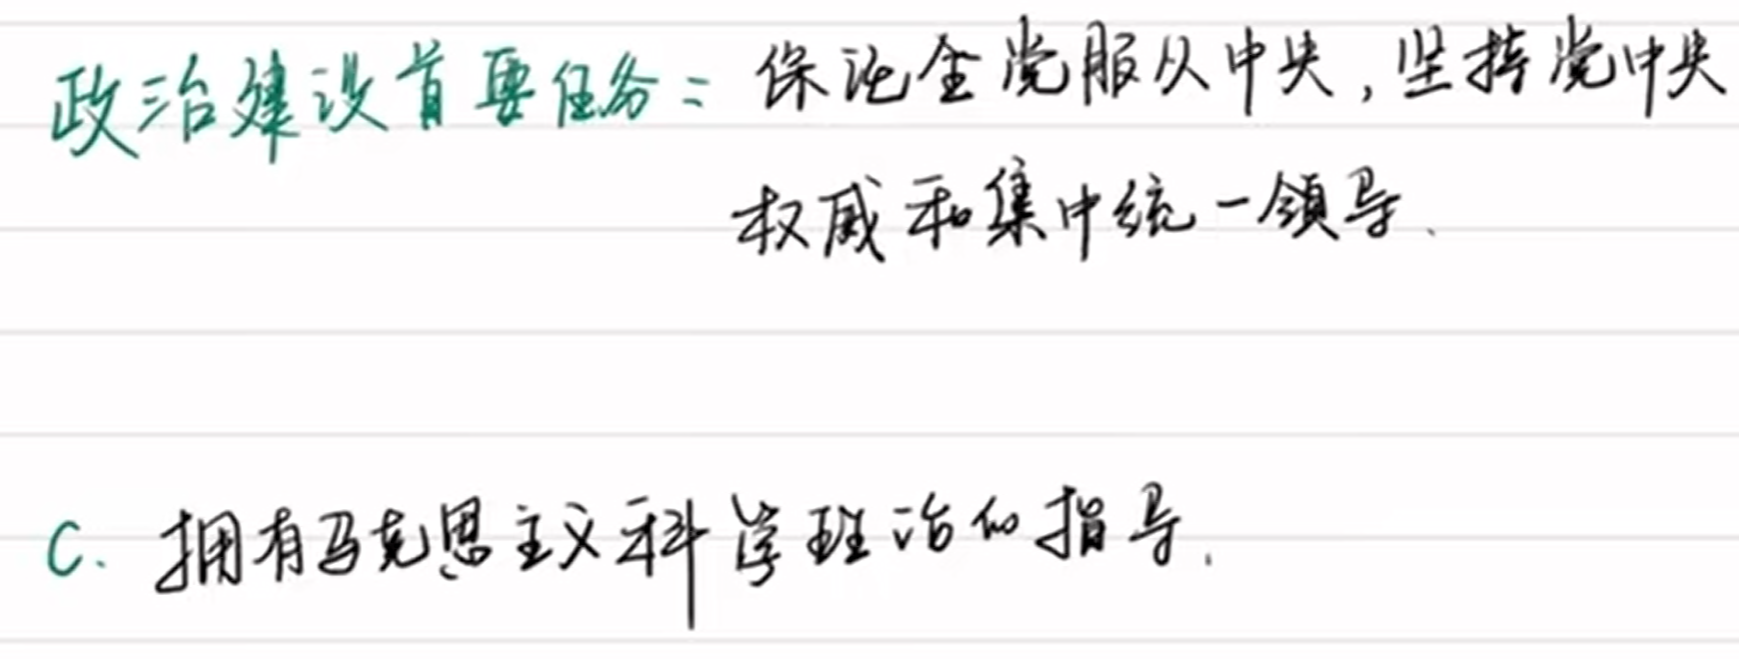 政治建设首要任务：保证全党服从中央，坚持党中央
权威和集中统一领导.
C. 拥有马克思主义科学理论的指导.